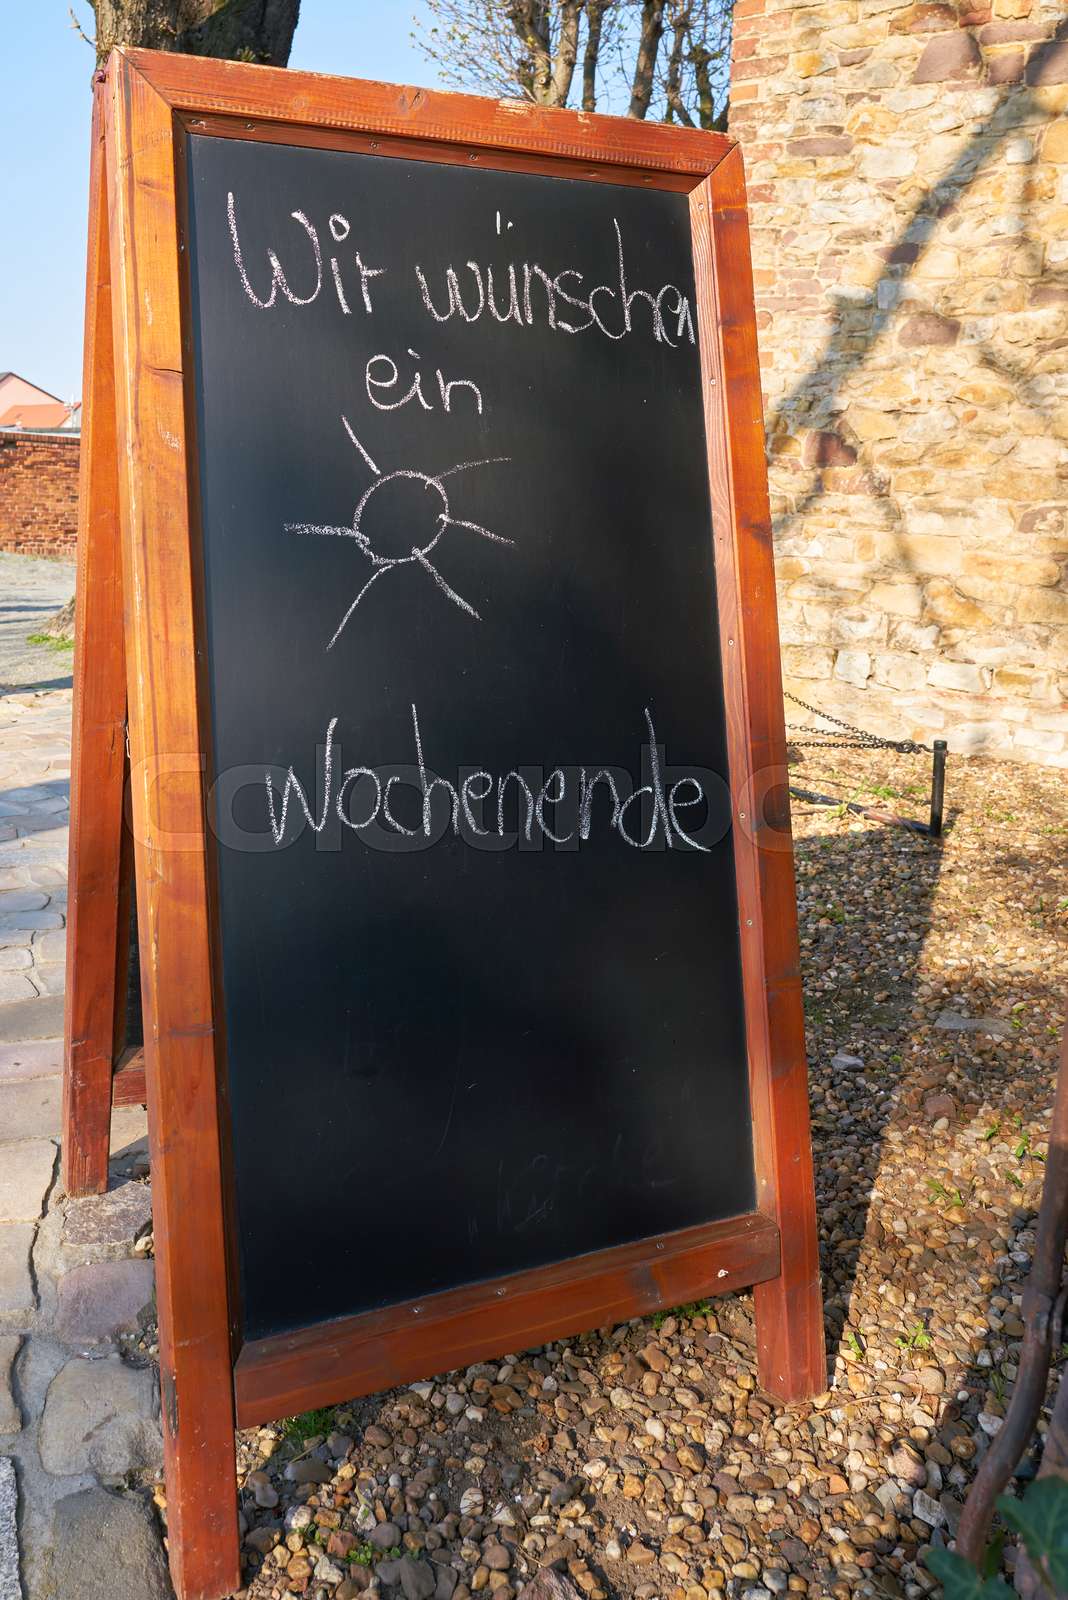 Wir wünschen
ein
Wochenende
colourbox